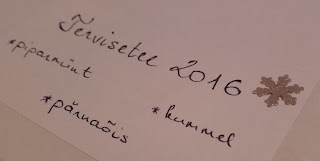 Tervisetee 2016
*piparmünt
*kummel
*pärnaõis